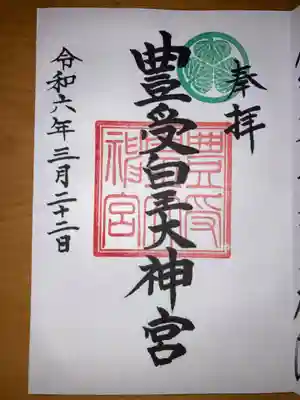 奉拝
豊受皇大神宮
豊受
神宮
令和六年三月二十二日